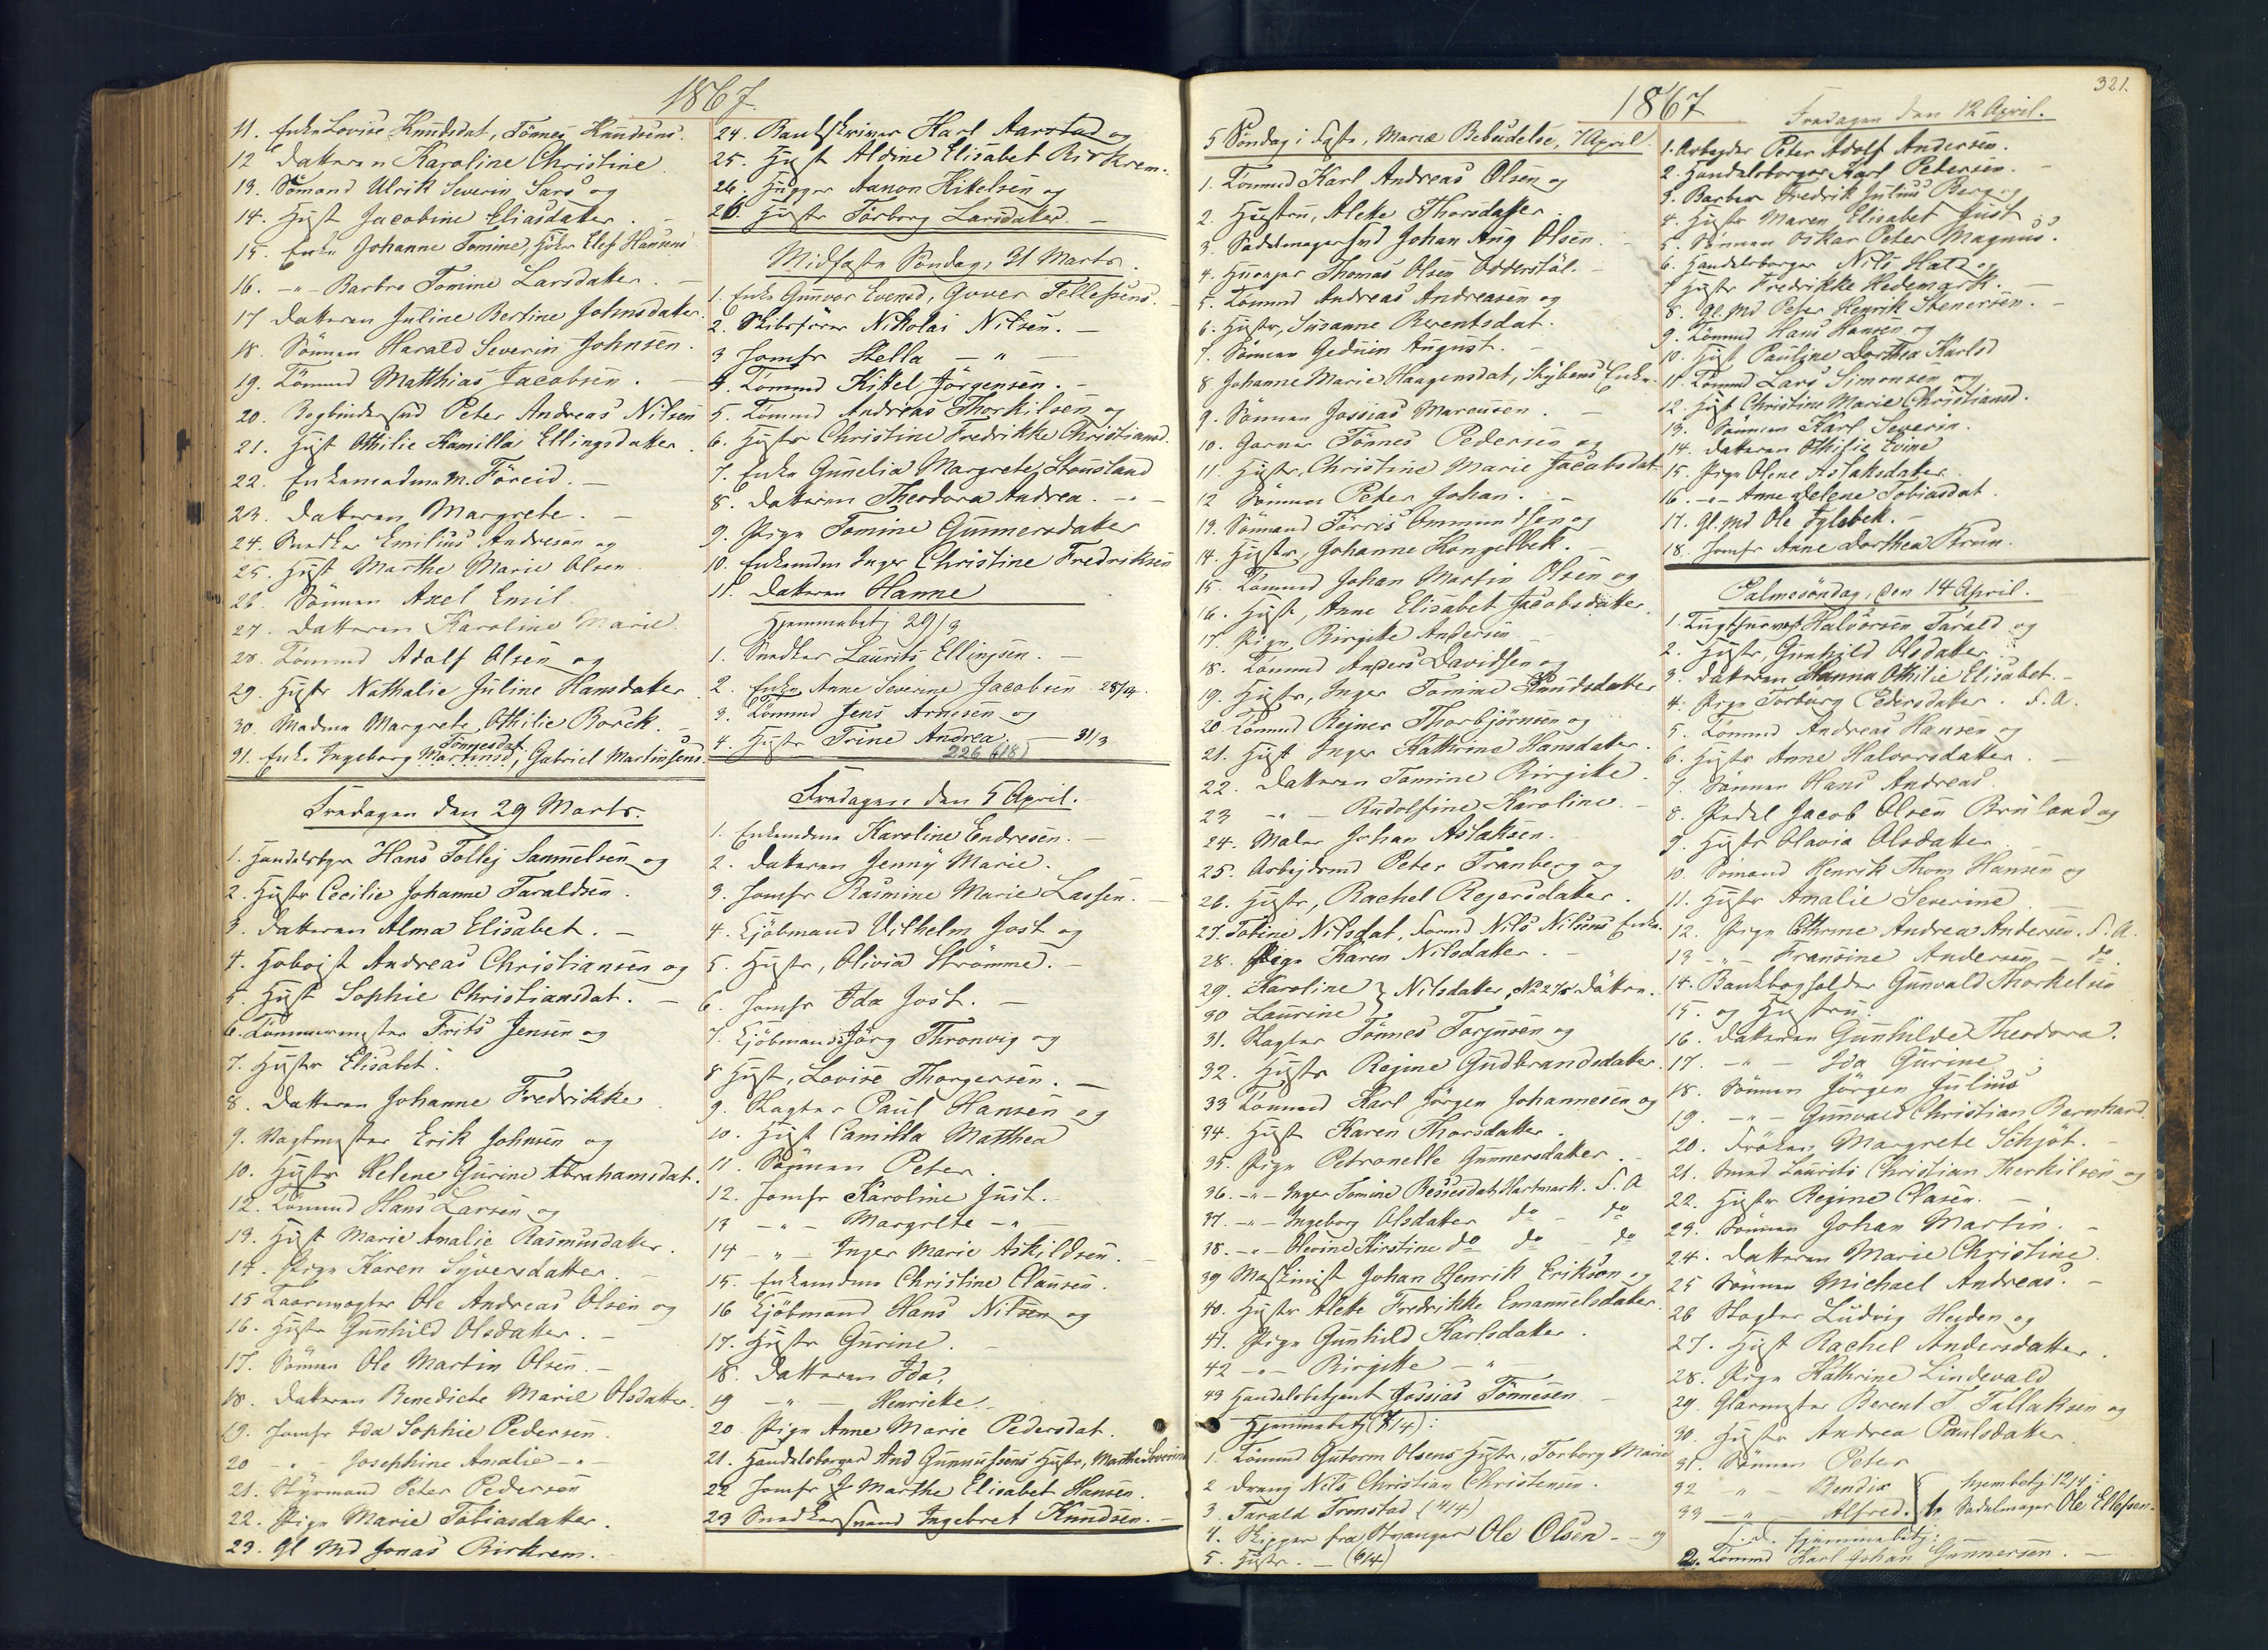 1867.
11. Enke Lovise Knudsdat, Tönnes Knudsens.
12 Datteren Karoline Christine.
13. Sömand Ulrik Severin Sars og
14. Hust Jacobine Eliasdatter. -
15. Enke Johanne Tomine, Elef Hansens
16. -"- Barbro Tomine Larsdatter. -
17 Datteren Juline Bertine Johnsdatter.
18. Sönnen Harald Severin Johnsen.
19. Tömmd Matthias Jacobsen. -
20. Bogbindersvd Peter Andreas Nilsen
21. Hust Othilie Kamilla Ellingsdatter.
22. Enkemadm M. Föreid. -
23. Datteren Margrete. -
24. Snedker Emilius Andresen og
25. Hust Marthe Marie Olsen
26. Sönnen Axel Emil.
27. Datteren Karoline Marie.
28. Tömmd Adolf Olsen og
29. Hustr Nathalie Juline Hansdatter
30. Madm Margrete Othilie Rorck.
Tönnesdat
31. Enke Ingeborg Martinsd, Gabriel Martinsens.
Fredagen den 29 Marts.
1. Handelsbgr Hans Tollej Samuelsen og
2. Hustr Cecilie Johanne Taraldsen.
3. Datteren Alma Elisabet. -
4. Hoboist Andreas Christiansen og
5. Hust Sophie Christiansdat. -
6. Tömmermester Frits Jensen og
7. Hustr Elisabet.
8. Datteren Johanne Fredrikke
9. Vagtmester Erik Johnsen og
10. Hustr Helene Gurine Abrahamsdat.
12. Tömmd Hans Larsen og
13. Hust Marie Amalie Rasmusdatter.
14. Pige Karen Syversdatter. -
15 Taarnvogter Ole Andreas Olsen og
16. Hustr Gunhild Olsdatter. -
17. Sönnen Ole Martin Olsen. -
18. Datteren Benedicte Marie Olsdatter.
19. Jomfr Ida Sophie Pedersen.
20 -"- Josephine Amalie -"-
21. Styrmand Peter Pedersen
22. Pige Marie Tobiasdatter.
23. Gl Md Jonas Birkrem. -
24. Bankskriver Karl Aarstad og
25. Hust Aldine Elisabet Birkrem.
26. Hugger Aanon Kittelsen og
26. Hustr Torborg Larsdatter. -
Midfaste Söndag, 31 Marts.
1. Enke Gunvor Evensd, Gover Tellefsens.
2. Skibsförer Nikolai Nilsen. -
3 Jomfr Stella - " -
4. Tömmd Kittel Jörgensen. -
5. Tömmd Andreas Thorkilsen og
6. Hustr Christine Fredrikke Christiansd.
7. Enke Gunelia Margrete Stousland
8. Datteren Theodora Andrea. -"-
9. Pige Tomine Gunnersdatter
10. Enkemdm Inger Christine Fredriksen
11. Datteren Hanne
Hjemmebetj 29/3
1. Snedker Laurits Ellingsen. -
2. Enke Anne Severine Jacobsen 28/4.
3. Tömmd Jens Arnesen og
4. Hustr Trine Andrea. - 31/3
226 (18)
Fredagen den 5 April.
1. Enkemdm Karoline Endresen. -
2. Datteren Jenny Marie.
3. Jomfr Rasmine Marie Lassen. -
4. Kjöbmand Vilhelm Jost og
5. Hustr, Olivia Strömme. -
6. Jomfr Ida Jost. -
7. Kjöbmand Jörg Thronvig og
8 Hust, Lovise Thorgersen. -
9. Slagter Paul Hansen og
10. Hust Camilla Matthea
11. Sönnen Peter.
12. Jomfr Karoline Just. -
13 -"- Margrete -"-
14 -"- Inger Marie Askildsen. -
15. Enkemdm Christine Clausen.
16 Kjöbmand Hans Nilsen og
17. Hustr Gurine. -
18. Datteren Ida.
19 -"- Henriette.
20. Pige Anne Marie Pedersdat.
21. Handelsborger And Gunnufsens Hustr, Marthe Severine
22 Jomfr Marthe Elisabet Hansen.
23 Snedkersvend Ingebret Knudsen. -
1867
321.
5 Söndag i Faste, Mariæ Bebudelse, 7 April.
1. Tömmd Karl Andreas Olsen og
2. Hustru, Aleke Thorsdatter
3. Sadelmagersvd Johan Aug Olsen.
4. Thomas Olsen Odderstöl. -
5. Tömmd Andreas Andreasen og
6. Hustr, Susanne Berentsdat.
7. Sönnen Geduin August. -
8 Johanne Marie Haagensdat, Enke.
9. Sönnen Jossias Marcussen. -
10. Garver Tönnes Pedersen og
11 Hustr, Christine Marie Jacobsdat
12 Sönnen Peter Johan. -
13. Sömand Torris Ommundsen og
14. Hustr, Johanne Kongelbek. -
15. Tömmd Johan Martin Olsen og
16. Hust, Anne Elisabet Jacobsdatter.
17. Pige Birgitte Andersen
18. Tömmd Anders Davidsen og
19. Hustr, Inger Tomine Knudsdatter
20 Tömmd Rejner Thorbjörnsen og
21. Hust Inger Kathrine Hansdatter.
22. Datteren Tomine Birgitte.
23 -"- Rudolfine Karoline. -
24. Maler Johan Aslaksen.
25. Arbejdsmd Peter Tranberg og
26. Hustr, Rachel Rejersdatter.
27. Tobine Nilsdat, Nils Nilsens Enke.
28. Pige Karen Nilsdatter. -
29. Karoline } Nilsdatter, No 27s Döttre.
30 Laurine
31. Slagter Tönnes Torjusen og
32. Hustr Rejine Gudbrandsdatter.
33 Tömmd Karl Jörgen Johannesen og
34. Hust Karen Thorsdatter.
35. Pige Petronelle Gunnersdatter. -
36. -"- Inger Tomine Bessesdat, Hartmark. F. A
37. -"- Ingeborg Olsdatter do - do
38. -"- Olevine Kirstine do do - do
39 Maskinist Johan Henrik Erikson og
40. Hustr Aleke Fredrikke Emanuelsdatter
41. Pige Gunhild Karlsdatter.
42 -"- Birgitte - "
43 Handelsbetjent Jossias Tönnesen. -
Hjemmebetj (7/4):
1. Tömmd Gutorm Olsens Hustr, Torborg Marie
2 Dreng Nils Christian Christensen.
3. Tarald Tronstad (4/4)
4. Skipper fra Stavanger Ole Olsen - - og
5. Hustr. - (6/4)
Fredagen den 12 April.
1. Arbejder Peter Adolf Andersen.
2. Handelsborger Karl Petersen. -
3. Barber Fredrik Julius Berg og
4. Hustr Maren Elisabet Just
5. Sönnen Oskar Peter Magnus.
6. Handelsborger Nils Hatz og
7 Hustr Fredrikke Hedemark. -
8. Gl. Md Peter Henrik Stenersen. -
9. Tömmd Hans Hansen og
10. Hust Pauline Dorthea Karlsd
11. Tömmd Lars Simonsen og
12. Hust Christine Marie Christiansd.
13. Sönnen Karl Severin.
14. Datteren Othilie Evine
15. Pige Olene Aslaksdatter.
16. -"- Anne Helene Tobiasdat.
17. Gl. Md Ole Fylebek. -
18. Jomfr Anne Dorthea Bruun.
Palmesöndag, den 14 April.
1. Halvorsen Tarald og
2. Hustr, Gunhild Olsdatter.
3. Datteren Hanna Othilie Elisabet. -
4. Pige Torborg Pedersdatter. F. A.
5. Tömmd Andreas Hansen og
6. Hustr Anne Halvorsdatter. -
7. Sönnen Hans Andreas.
8. Pedel Jacob Olsen Bruland og
9. Hustr Olavia Olsdatter
10. Sömand Henrik Thom Hansen og
11. Hustr Amalie Severine. -
12. Pige Cthrine Andrea Andersen. F. A.
13 -"- Fransine Andersen - do.
14. Bankbogholder Gunvald Thorkelsen
15. og Hustru.
16. Datteren Gunhilde Theodora.
17. -"- Ida Gurine
18. Sönnen Jörgen Julius
19. -"- Gunvald Christian Bernhard.
20. Fröken Margrete Schjöt. -
21. Smed Laurits Christian Therkilsen og
22. Hustr Rejine Clasen. -
23. Sönnen Johan Martin. -
24. Datteren Marie Christine.
25 Sönnen Michael Andreas. -
26 Slagter Ludvig Heiden og
27. Hust Rachel Andersdatter.
28. Pige Kathrine Lindevald
29. Glarmester Berent T. Tallaksen og
30. Hustr Andrea Paulsdatter.
31. Sönnen Peter
32 " - Bendix
33 -"- Alfred.
hjembetj 12/4:
1. Sadelmager Ole Ellefsen.
Hjemmebetj:
2. Tömmd Karl Johan Gunnersen. -